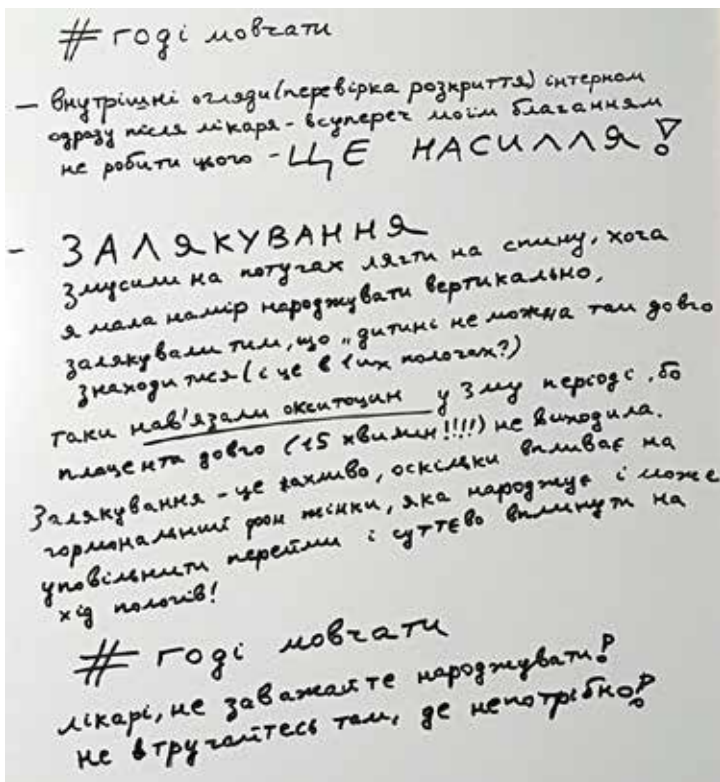 # годі мовчати
— внутрішні огляди (перевірка розкриття) інтерном
одразу після лікаря - всупереч моїм благанням
не робити цього - ЦЕ НАСИЛЛЯ!
- ЗАЛЯКУВАННЯ
Змусили на потугах лягти на спину, хоча
я мала намір народжувати вертикально,
залякували тим, що „дитині не можна там довго
знаходитися (і це в 1их пологах?)
таки нав'язали окситоцин у 3му періоді, бо
плацента довго (15 хвилин!!!!) не виходила.
Залякування - це жахливо, оскільки впливає на
гормональний фон жінки, яка народжує і може
уповільнити перейми і суттєво вплинути на
хід пологів!
# годі мовчати
лікарі, не заважайте народжувати!
не втручайтесь там, де непотрібно!